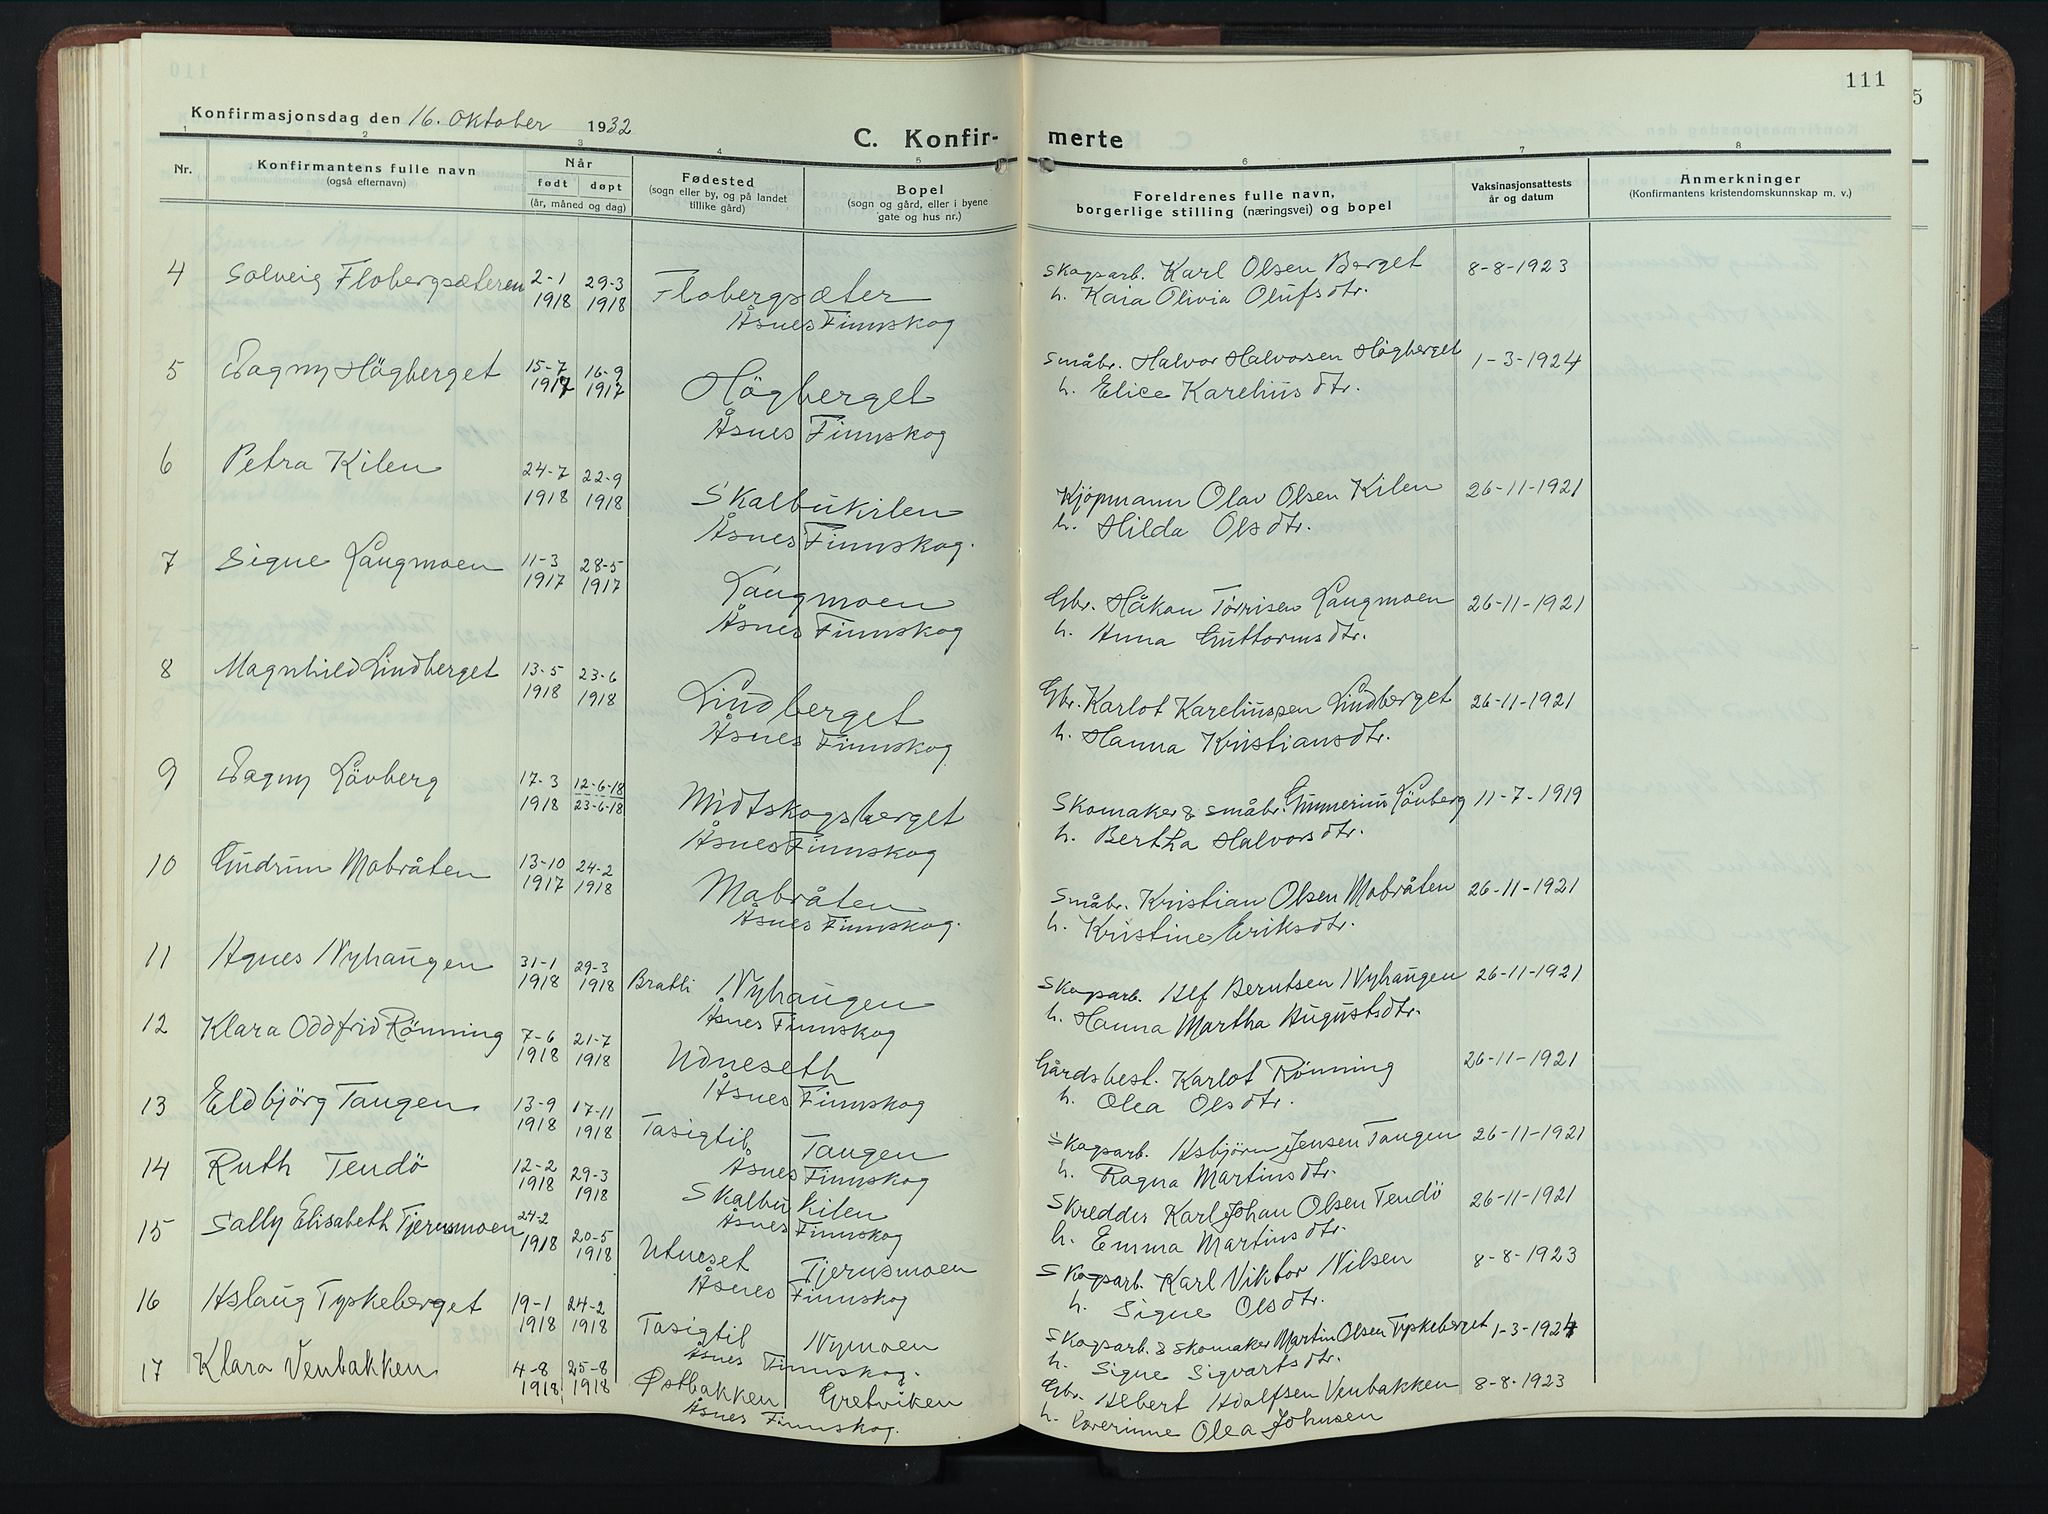 111
Konfirmasjonsdag den 16. Oktober 1932
C. Konfir- merte
1 2 3 4 5 6 7 8
Nr. Konfirmantens fulle navn (også efternavn) Når født døpt (år, måned og dag) Fødested (sogn eller by, og på landet tillike gård) Bopel (sogn og gård, eller i byene gate og hus nr.) Foreldrenes fulle navn, borgerlige stilling (næringsvei) og bopel Vaksinasjonsattests år og datum Anmerkninger (Konfirmantens kristendomskunnskap m. v.)
4 Solveig Flobergsæteren 2-1 29-3 Flobergsæter Skogsarb. Karl Olsen Berget 8-8-1923
1918 1918 Åsnes Finnskog h. Kaia Olivia Olufsdtr.
5 Dagny Högberget 15-7 16-9 Högberget Småbr. Halvor Halvorsen Högberget 1-3-1924
1917 1917 Åsnes Finnskog h. Elice Kareliusdtr.
6 Petra Kilen 24-7 22-9 Skalbukilen Kjöpmann Olav Olsen Kilen 26-11-1921
1918 1918 Åsnes Finnskog. h. Hilda Olsdtr.
7 Signe Langmoen 11-3 28-5 Langmoen Gbr. Håkon Törrisen Langmoen 26-11-1921
1917 1917 Åsnes Finnskog h. Anna Guttormsdtr.
8 Magnhild Lindberget 13-5 23-6 Lindberget Gbr. Karlot Kareliussen Lindberget 26-11-1921
1918 1918 Åsnes Finnskog h. Hanna Kristiansdtr.
9 Dagny Lövberg 17-3 12-6-18 Midtskogsberget Skomaker & småbr. Gunnerius Lövberg 11-7-1919
1918 23-6-18 Åsnes Finnskog h. Bertha Halvorsdtr.
10 Gudrun Mobråten 13-10 24-2 Mobråten Småbr. Kristian Olsen Mobråten 26-11-1921
1917 1918 Åsnes Finnskog. h. Kristine Eriksdtr.
11 Agnes Nyhaugen 31-1 29-3 Bratli Nyhaugen Skogsarb. Alf Berntsen Nyhaugen 26-11-1921
1918 1918 Åsnes Finnskog h. Hanna Martha Augustsdtr.
12 Klara Oddfrid Rönning 7-6 21-7 Udneseth Gårdsbest. Karlot Rönning 26-11-1921
1918 1918 Åsnes Finnskog h. Olea Olsdtr.
13 Eldbjörg Tangen 13-9 17-11 Tasigtil Tangen Skogsarb. Asbjörn Jensen Tangen 26-11-1921
1918 1918 Åsnes Finnskog h. Ragna Martinsdtr.
14 Ruth Tendö 12-2 29-3 Skalbukilen Skredder Karl Johan Olsen Tendö 26-11-1921
1918 1918 Åsnes Finnskog h. Emma Martinsdtr.
15 Sally Elisabeth Tjernsmoen 24-2 20-5 Utneset Tjernsmoen Skogsarb. Karl Viktor Nilsen 8-8-1923
1918 1918 Åsnes Finnskog h. Signe Olsdtr.
16 Aslaug Tyskeberget 19-1 24-2 Tasigtil Nymoen Skogsarb. & skomaker Martin Olsen Tyskeberget 1-3-1924
1918 1918 Åsnes Finnskog. h. Signe Sigvartsdtr.
17 Klara Venbakken 4-8 25-8 Østbakken Gretviken Gbr. Albert Adolfsen Venbakken 8-8-1923
1918 1918 Åsnes Finnskog. h. Olea Johnsen